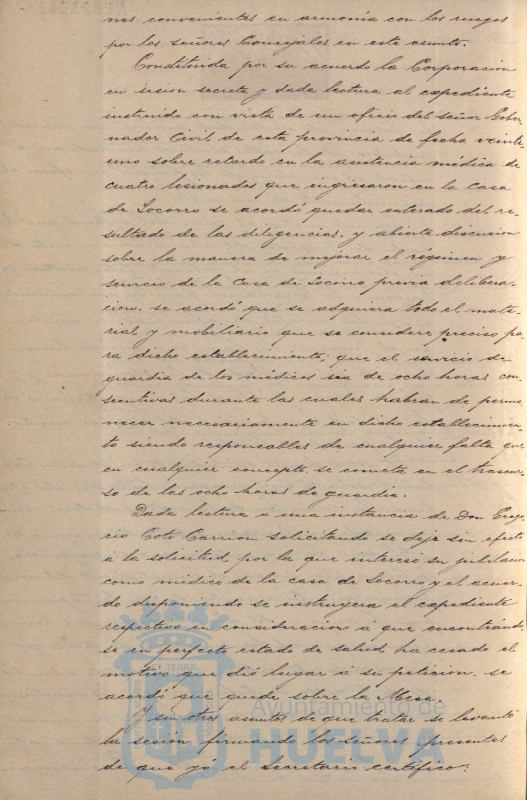 nes convenientes en armonía con los ruegos
por los señores Concejales en este asunto.
Constituida por su acuerdo la Corporacion
en sesion secreta y dada lectura al expediente
instruido con vista de un oficio del señor Gober-
nador Civil de esta provincia de fecha veinte-
uno sobre retardo en la asistencia médica de
cuatro lesionados que ingresaron en la Casa
de Socorro se acordó quedar enterado del re-
sultado de las diligencias, y abierta discusion
sobre la manera de mejorar el régimen y
servicio de la Casa de Socorro previa delibera-
cion, se acordó que se adquiera todo el mate-
rial y mobiliario que se considere preciso pa-
ra dicho establecimiento; que el servicio de
guardia de los médicos sea de ocho horas con-
secutivas durante las cuales habran de perma-
necer necesariamente en dicho establecimien-
to siendo responsables de cualquier falta que
en cualquier concepto se cometa en el trascur-
so de las ocho horas de guardia.
Dada lectura á una instancia de Don Grego-
rio Coto Carrion solicitando se deje sin efecto
á la solicitud, por la que interesó su jubilacion
como médico de la casa de Socorro y el acuer-
do disponiendo se instruyera el expediente
respectivo en consideracion á que encontrándo-
se en perfecto estado de salud, ha cesado el
motivo que dió lugar á su peticion. se
acordó que quede sobre la Mesa.
Y sin otros asuntos de que tratar se levantó
la sesión firmando los señores presentes
de que yo el Secretario certifico.
Ayuntamiento de
HUELVA